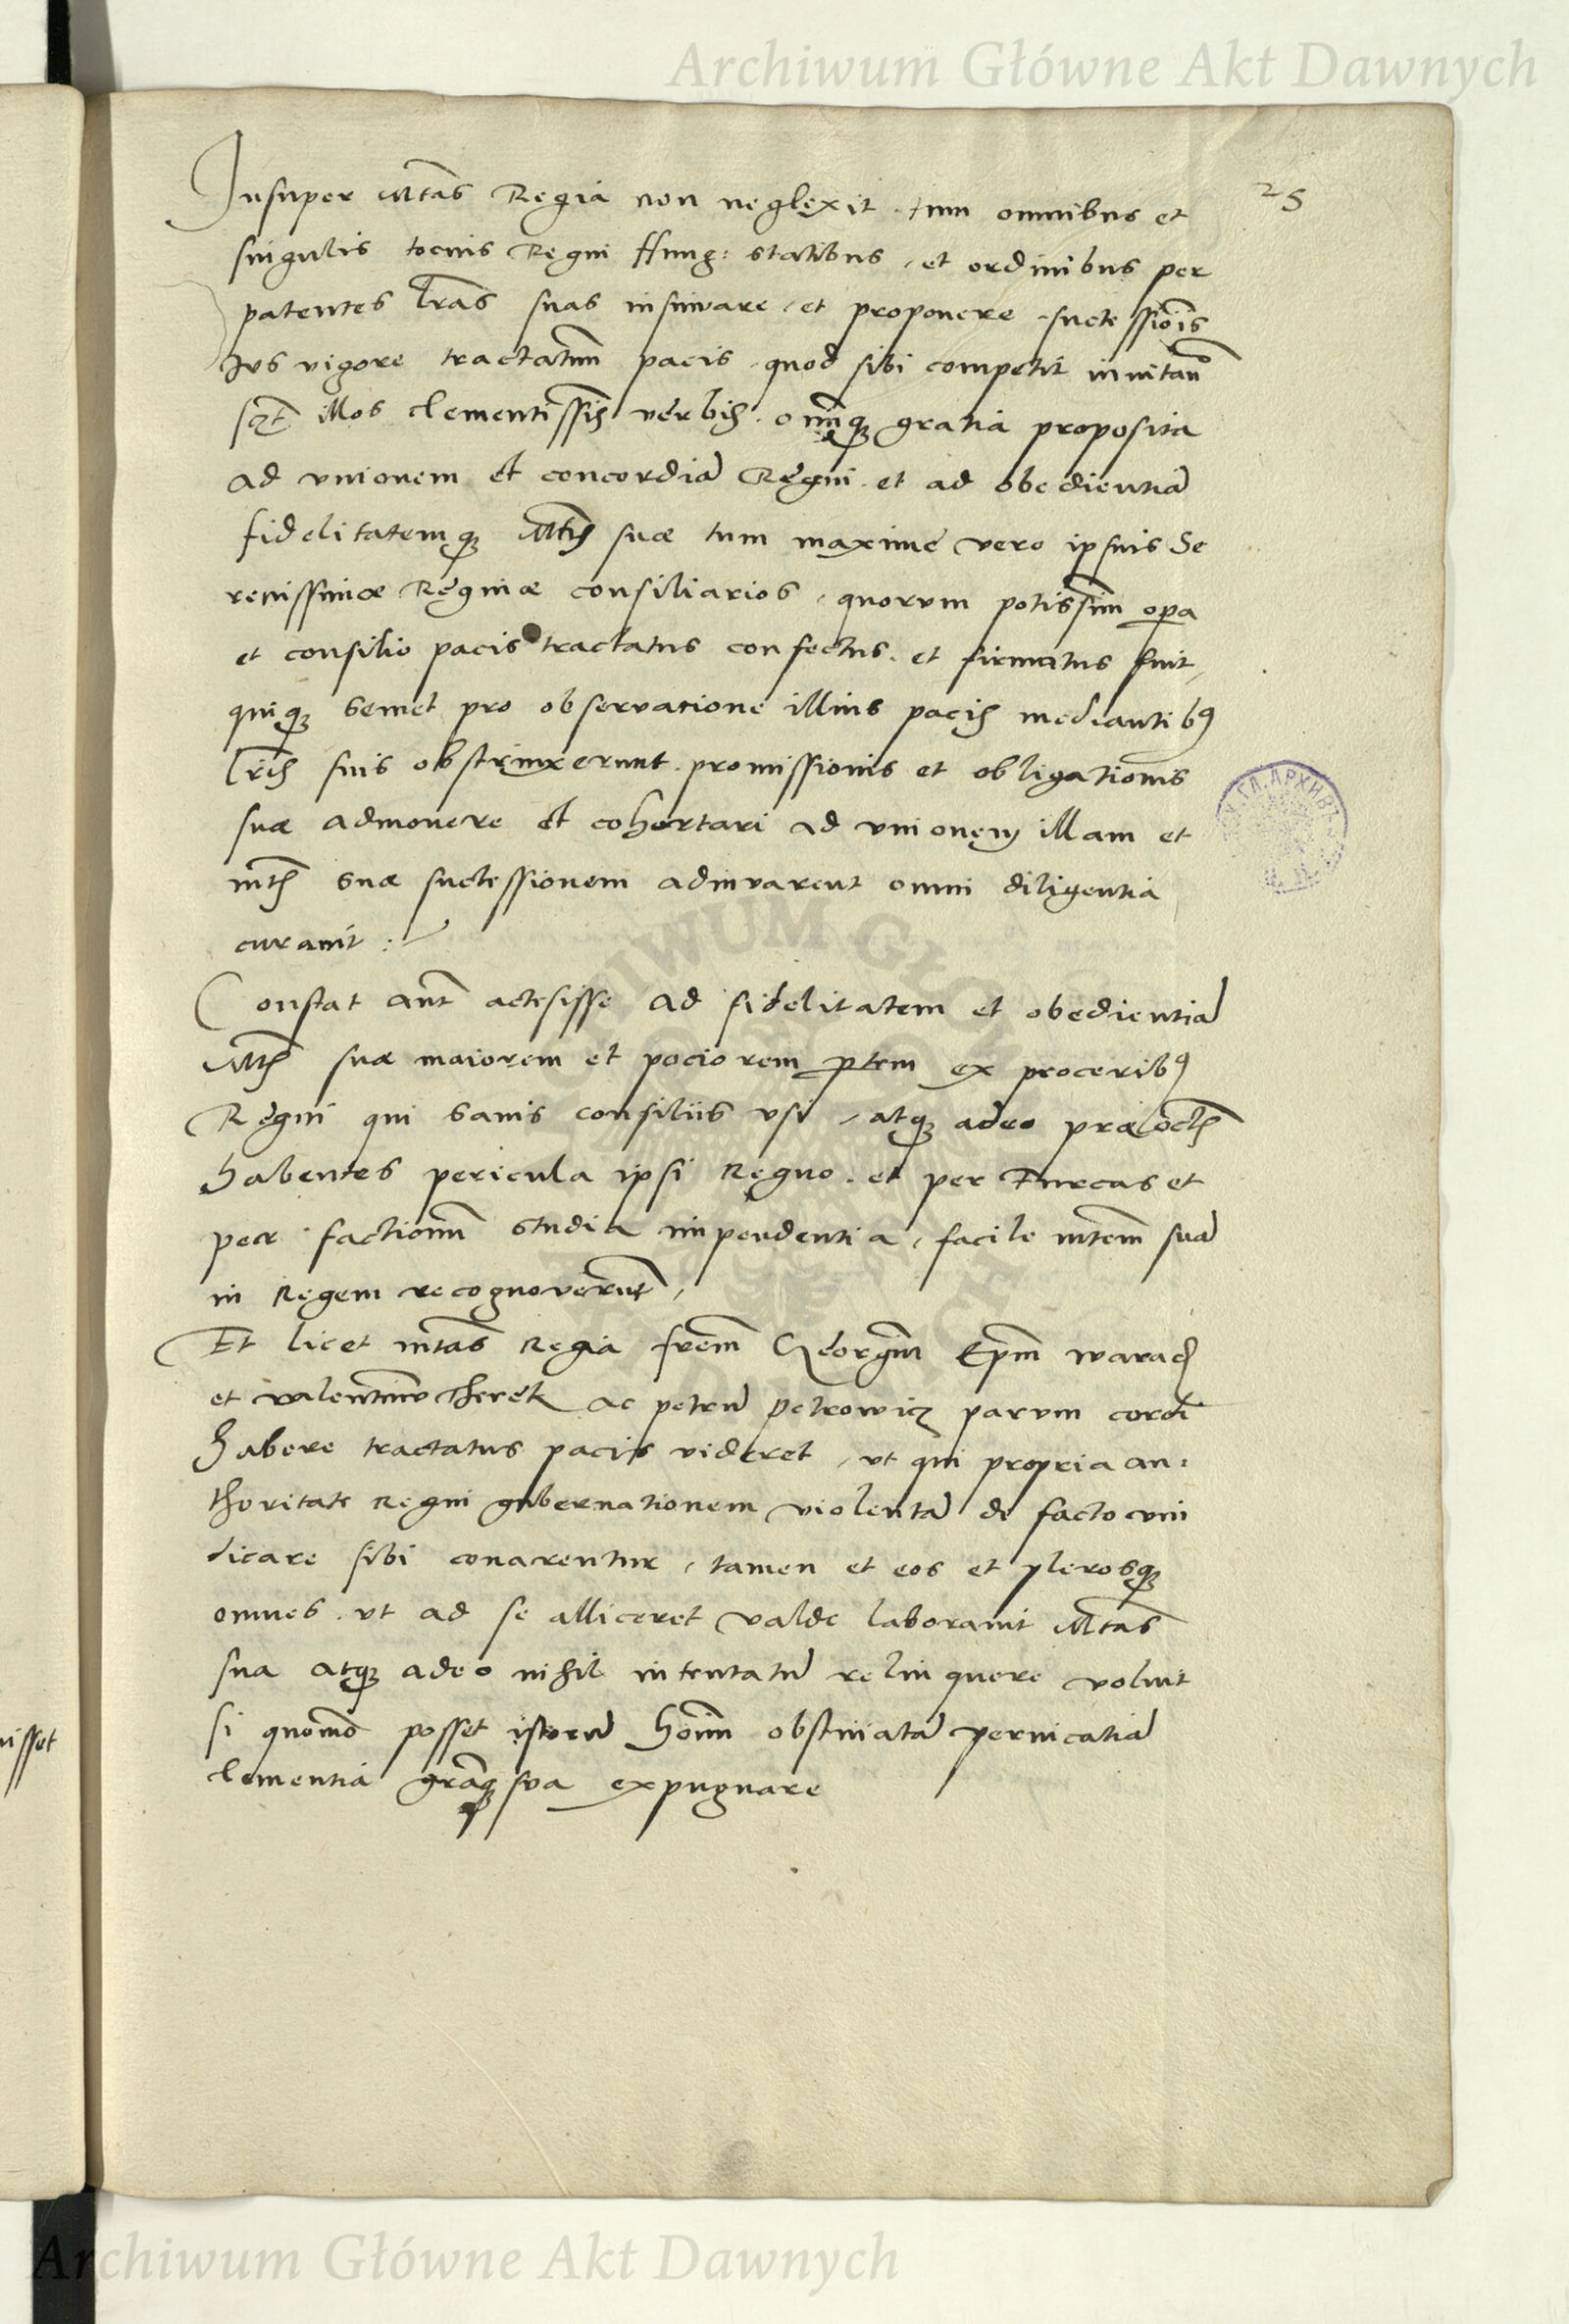 Archiwum Główne Akt Dawnych
25
Insuper Mtas Regia non neglexit tum omnibus et
singulis tocius Regni Hung: statibus, et ordinibus per
patentes lras suas insinuare, et proponere successiois
Jus vigore tractatuum pacis, quod sibi competit
illos clementissis verbis. omniq; gratia proposita
ad vnionem et concordia Regni. et ad obedientia
fidelitatemq; Mtis suæ tum maxime vero ipsius Se
renissimæ Reginæ consiliarios, quorum potissim opa
et consilio pacis tractatus confectus. et firmatus fuit,
quiq; semet pro observatione illius pacis mediantib9
lris suis obstrinxerunt. promissionis et obligationis
suæ admonere et cohortari ad vnionem illam et
mtis suæ successionem adiuvarent omni diligentia
curauit :
Constat aut accesisse ad fidelitatem et obedientia
Mtis suæ maiorem et pociorem ptem ex procerib9
Regni qui sanis consiliis vsi, atq; adeo præ oclis
habentes pericula ipsi Regno. et per Turcas et
per factionum studia impendentia, facile mtem sua
in Regem recognoverunt,
Et licet mtas Regia frem Georgium Epm warad
et valentinu Therek ac petru petrowicz parvm cordi
habere tractatus pacis videret, vt qui propria au:
thoritate Regni gubernationem violenta de facto vni
dicare sibi conarentur, tamen et eos et plerosq;
omnes. vt ad se alliceret valde laborauit Mtas
sua atq; adeo nihil intentatu relinquere voluit
si quomo posset istoru hoim obstinata pervicatia
clementia graq; sva expugnare
uisset
Archiwum Główne Akt Dawnych